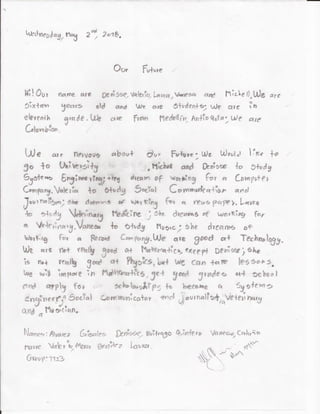 Wednesday, may 2nd, 2018.
Our Future
Hi! Our name are Denisse, Valeria, Laura, Vanessa and Michell, We are
sixteen years old and We are Students; We are in
eleventh grade. We are From Medellín, Antioquia; We are
Colombian.
We are nervous about Our Future; We Would like to
go to University, Michell and Denisse to Study
Systems Engineering; they dream of Working For a Computer
Company, Valeria to Study Social Communication and
Journalism; She dreams of working For a news paper, Laura
to study Vetrinary Medicine; She dreams of working For
a Vetrinary, Vanessa to Study Music; she dreams of
Working For a Record Company. We are good at Technology.
We are not really good at Mathematics, except Denisse; She
is not really good at Physics, but We can take lessons,
We will improve in Mathematics, get good grades at School
and apply For scholarships to become a Systems
Engineer, Social Communicator and journalist, Vetrinary
and a Musician.
Names: Alvarez Grisales Denisse, Buitrago Quintero Vanessa,
Valeria, Mora Benitez Laura.
Group: 1103